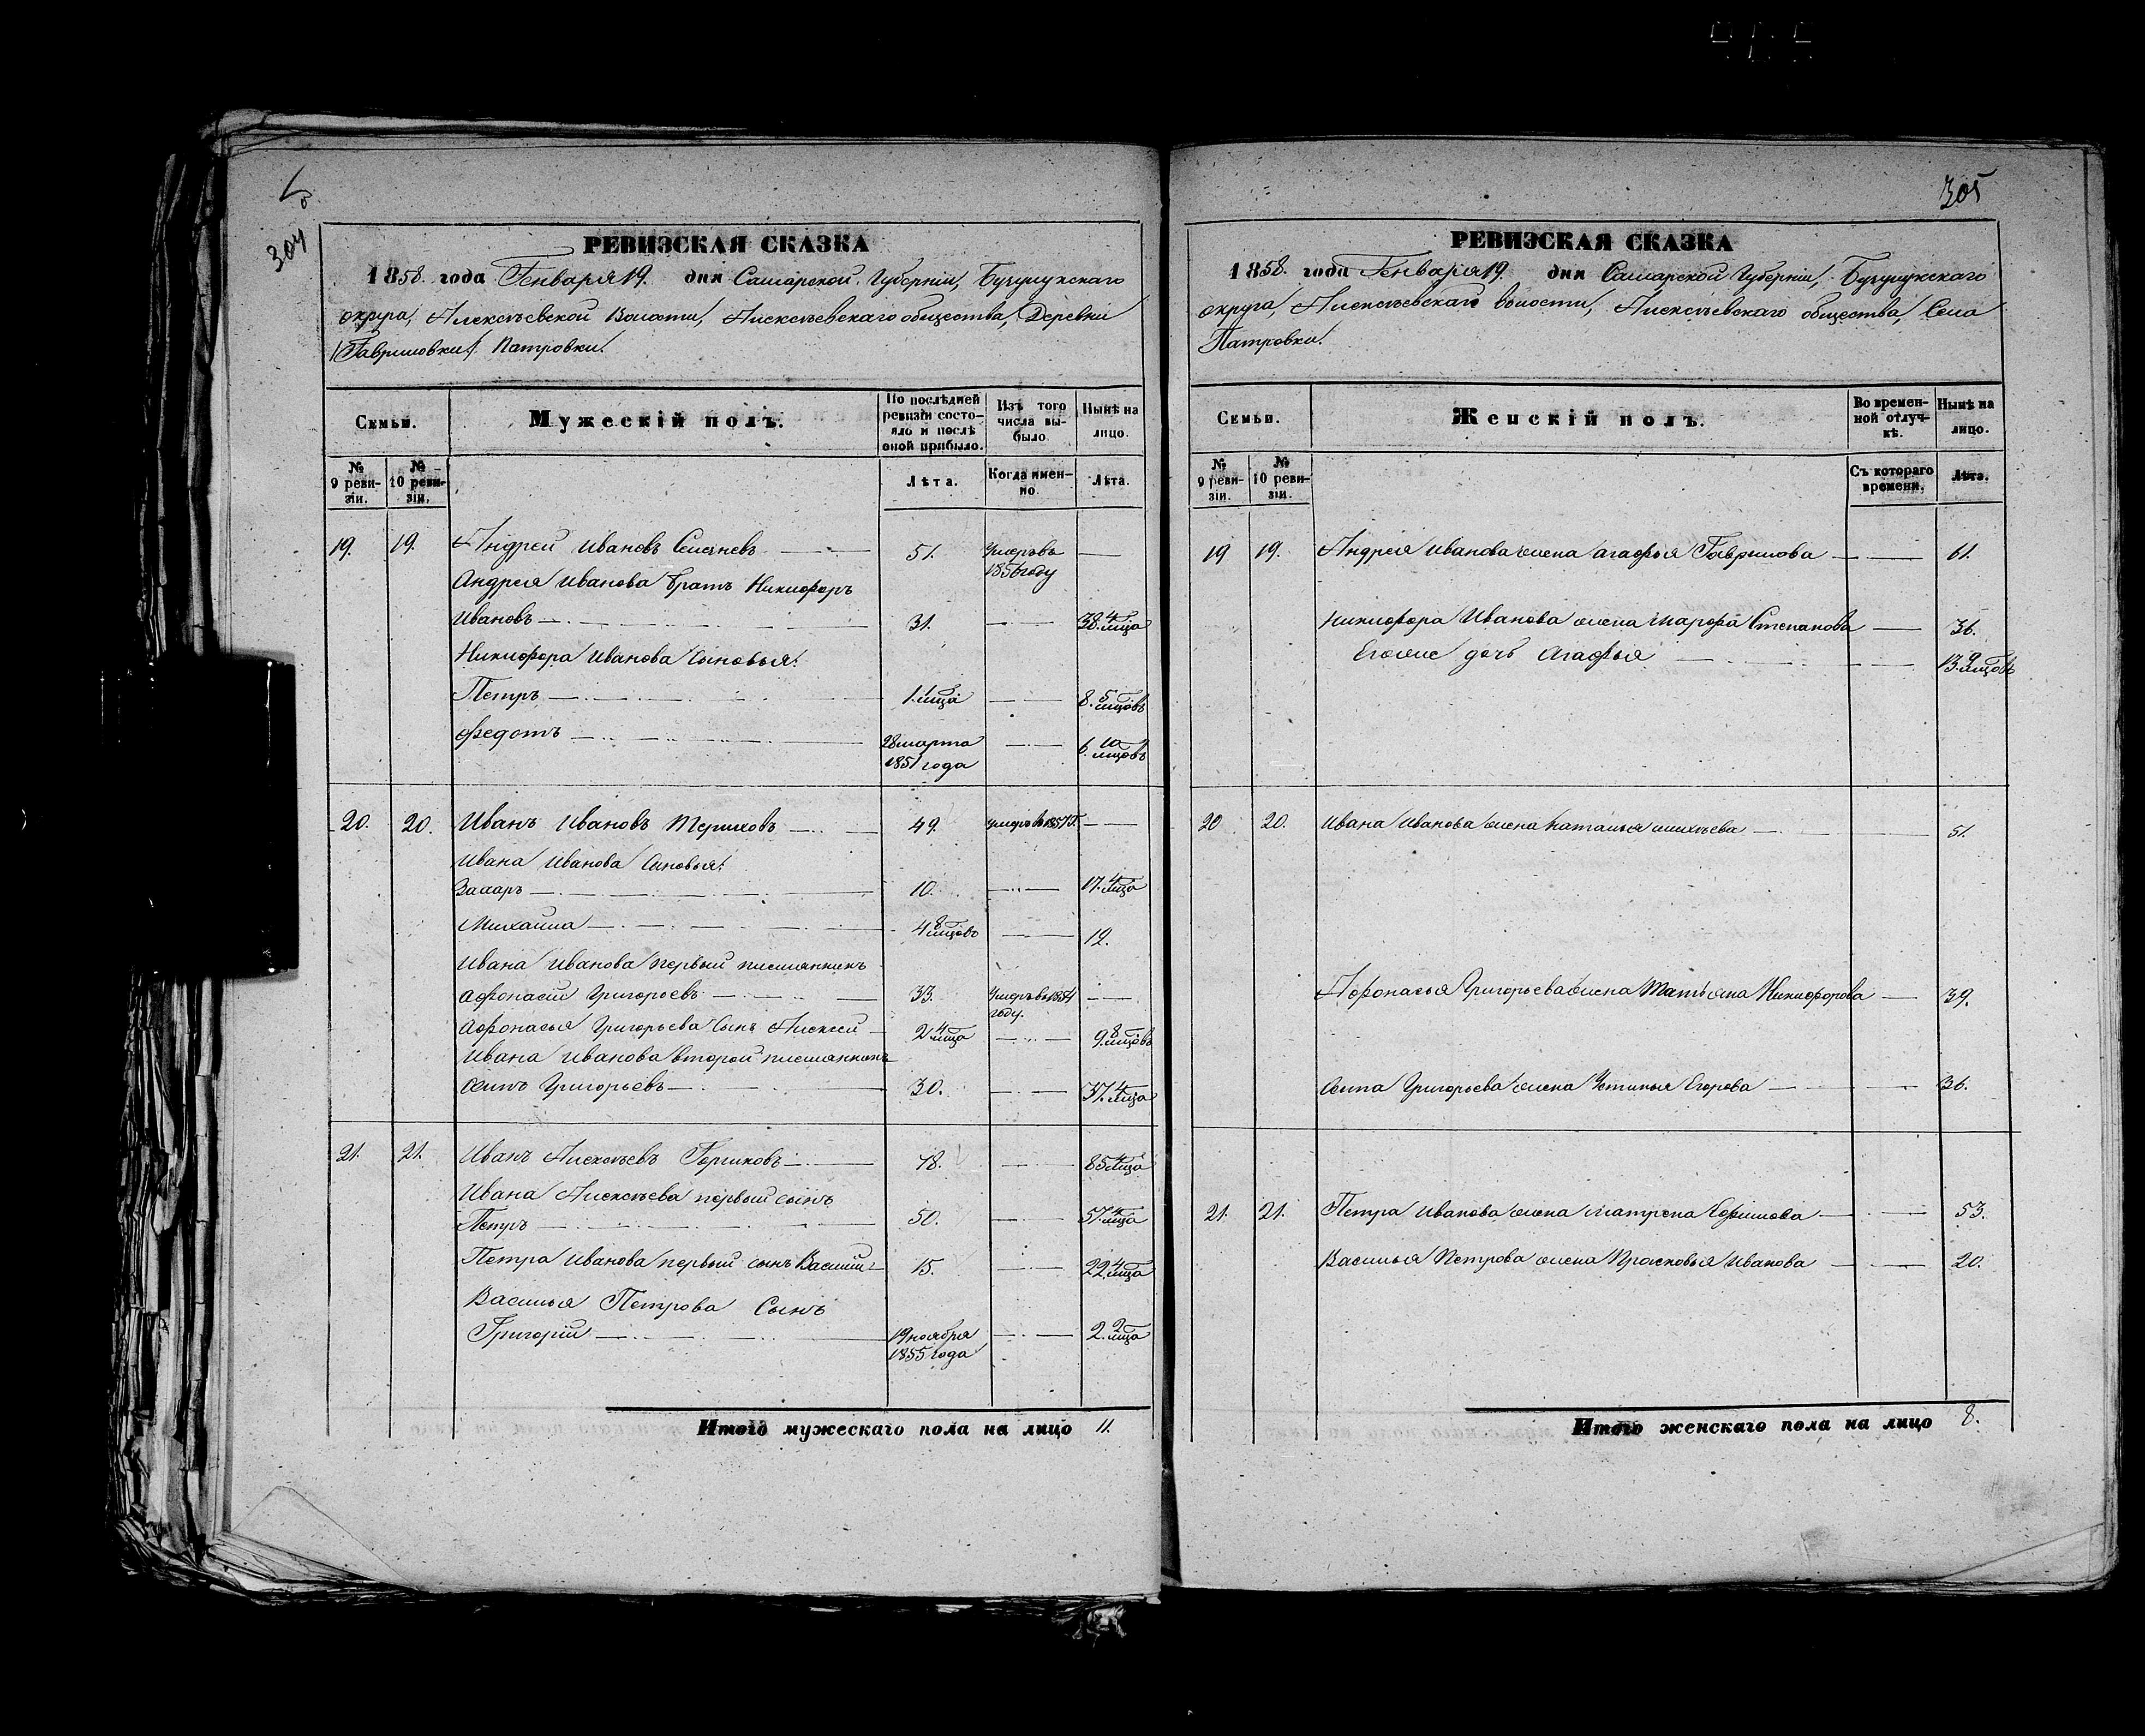 304
305
РЕВИЗСКАЯ СКАЗКА
1858. года Генваря 19. дня Самарской Губерніи, Бузулукскаго
округа, Алексѣевской Волости, Алексѣевскаго общества, Деревни
Гавриловки Патровки.
Семьи.
Мужескій полъ.
По послѣдней
ревизіи состо-
яло и послѣ
оной прибыло.
Изъ того
числа вы-
было.
Нынѣ на
лицо.
№
9 реви-
зіи.
№
10 реви-
зіи.
Лѣта.
Когда имен-
но.
Лѣта.
19. 19. Андрей Ивановъ 51. Умеръ въ —
185 году
Андрея Иванова братъ Никифоръ
Ивановъ 31. — 38. 4 мѣца
Никифора Иванова сыновья:
Петръ 1. мѣца — 8. 5 мѣцовъ
Федотъ 28 марта — 6. 10 мѣцовъ
1851 года
20. 20. Иванъ Ивановъ Териховъ 49. умеръ въ 1857 г. —
Ивана Иванова сыновья:
Захаръ 10. — 17. 4 мѣца
Михаила 4 8 мѣцовъ — 12.
Ивана Иванова первый племянникъ
Афонасій Григорьевъ 33. Умеръ въ 1854 —
году.
Афонасья Григорьева сынъ Алексей 2 4 мѣца — 9. 8 мѣцовъ
Ивана Иванова второй племянникъ
Осипъ Григорьевъ 30. — 37. 4 мѣца
21. 21. Иванъ Алексѣевъ Горшковъ 78. — 85 4 мѣца
Ивана Алексѣева первый сынъ
Петръ 50. — 57. 4 мѣца
Петра Иванова первый сынъ Василій 15. — 22 4 мѣца
Василья Петрова Сынъ
Григорій 19 ноября — 2. 2 мѣца
1855 года
Итого мужескаго пола на лицо 11.
РЕВИЗСКАЯ СКАЗКА
1858. года Генваря 19. дня Самарской Губерніи, Бузулукскаго
округа, Алексѣевскаго волости, Алексѣевскаго общества, Села
Патровки.
Семьи.
Женскій полъ.
Во времен-
ной отлуч-
кѣ.
Нынѣ на
лицо.
№
9 реви-
зіи.
№
10 реви-
зіи.
Съ котораго
времени.
Лѣта.
19 19. Андрея Иванова жена Агафья Гаврилова — 61.
Никифора Иванова жена Марфа Степанова — 36.
Егоже дочь Агафья — 13. 9 мѣцовъ
20 20. Ивана Иванова жена Наталья — 51.
Афонасья Григорьева жена Татьяна Никифорова — 39.
Осипа Григорьева жена Устинья Егорова — 36.
21. 21. Петра Иванова жена Матрена Ефимова — 53.
Василья Петрова жена Прасковья Иванова — 20.
Итого женскаго пола на лицо 8.